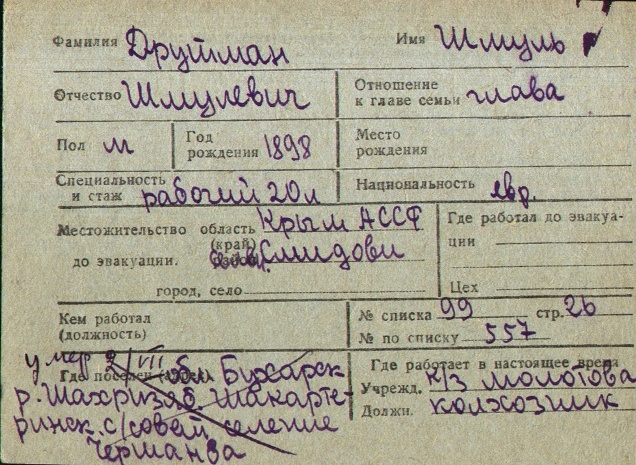 Фамилия Друтман Имя Шмуль
Отчество Шмулевич Отношение к главе семьи глава
Пол М Год рождения 1898 Место рождения
Специальность и стаж рабочий 20л Национальность евр.
Местожительство область (край) Крым АССР Где работал до эвакуации
до эвакуации. Смидови
город, село Цех
Кем работал (должность) № списка 99 стр. 26
№ по списку 557
умер 2/VII Где работает в настоящее время
Где поселен обл. Бухарск Учрежд. к/з молотова
р. Шахризяб. Шакарте- Должн. колхозник
ринск. с/совет селение
Черманва